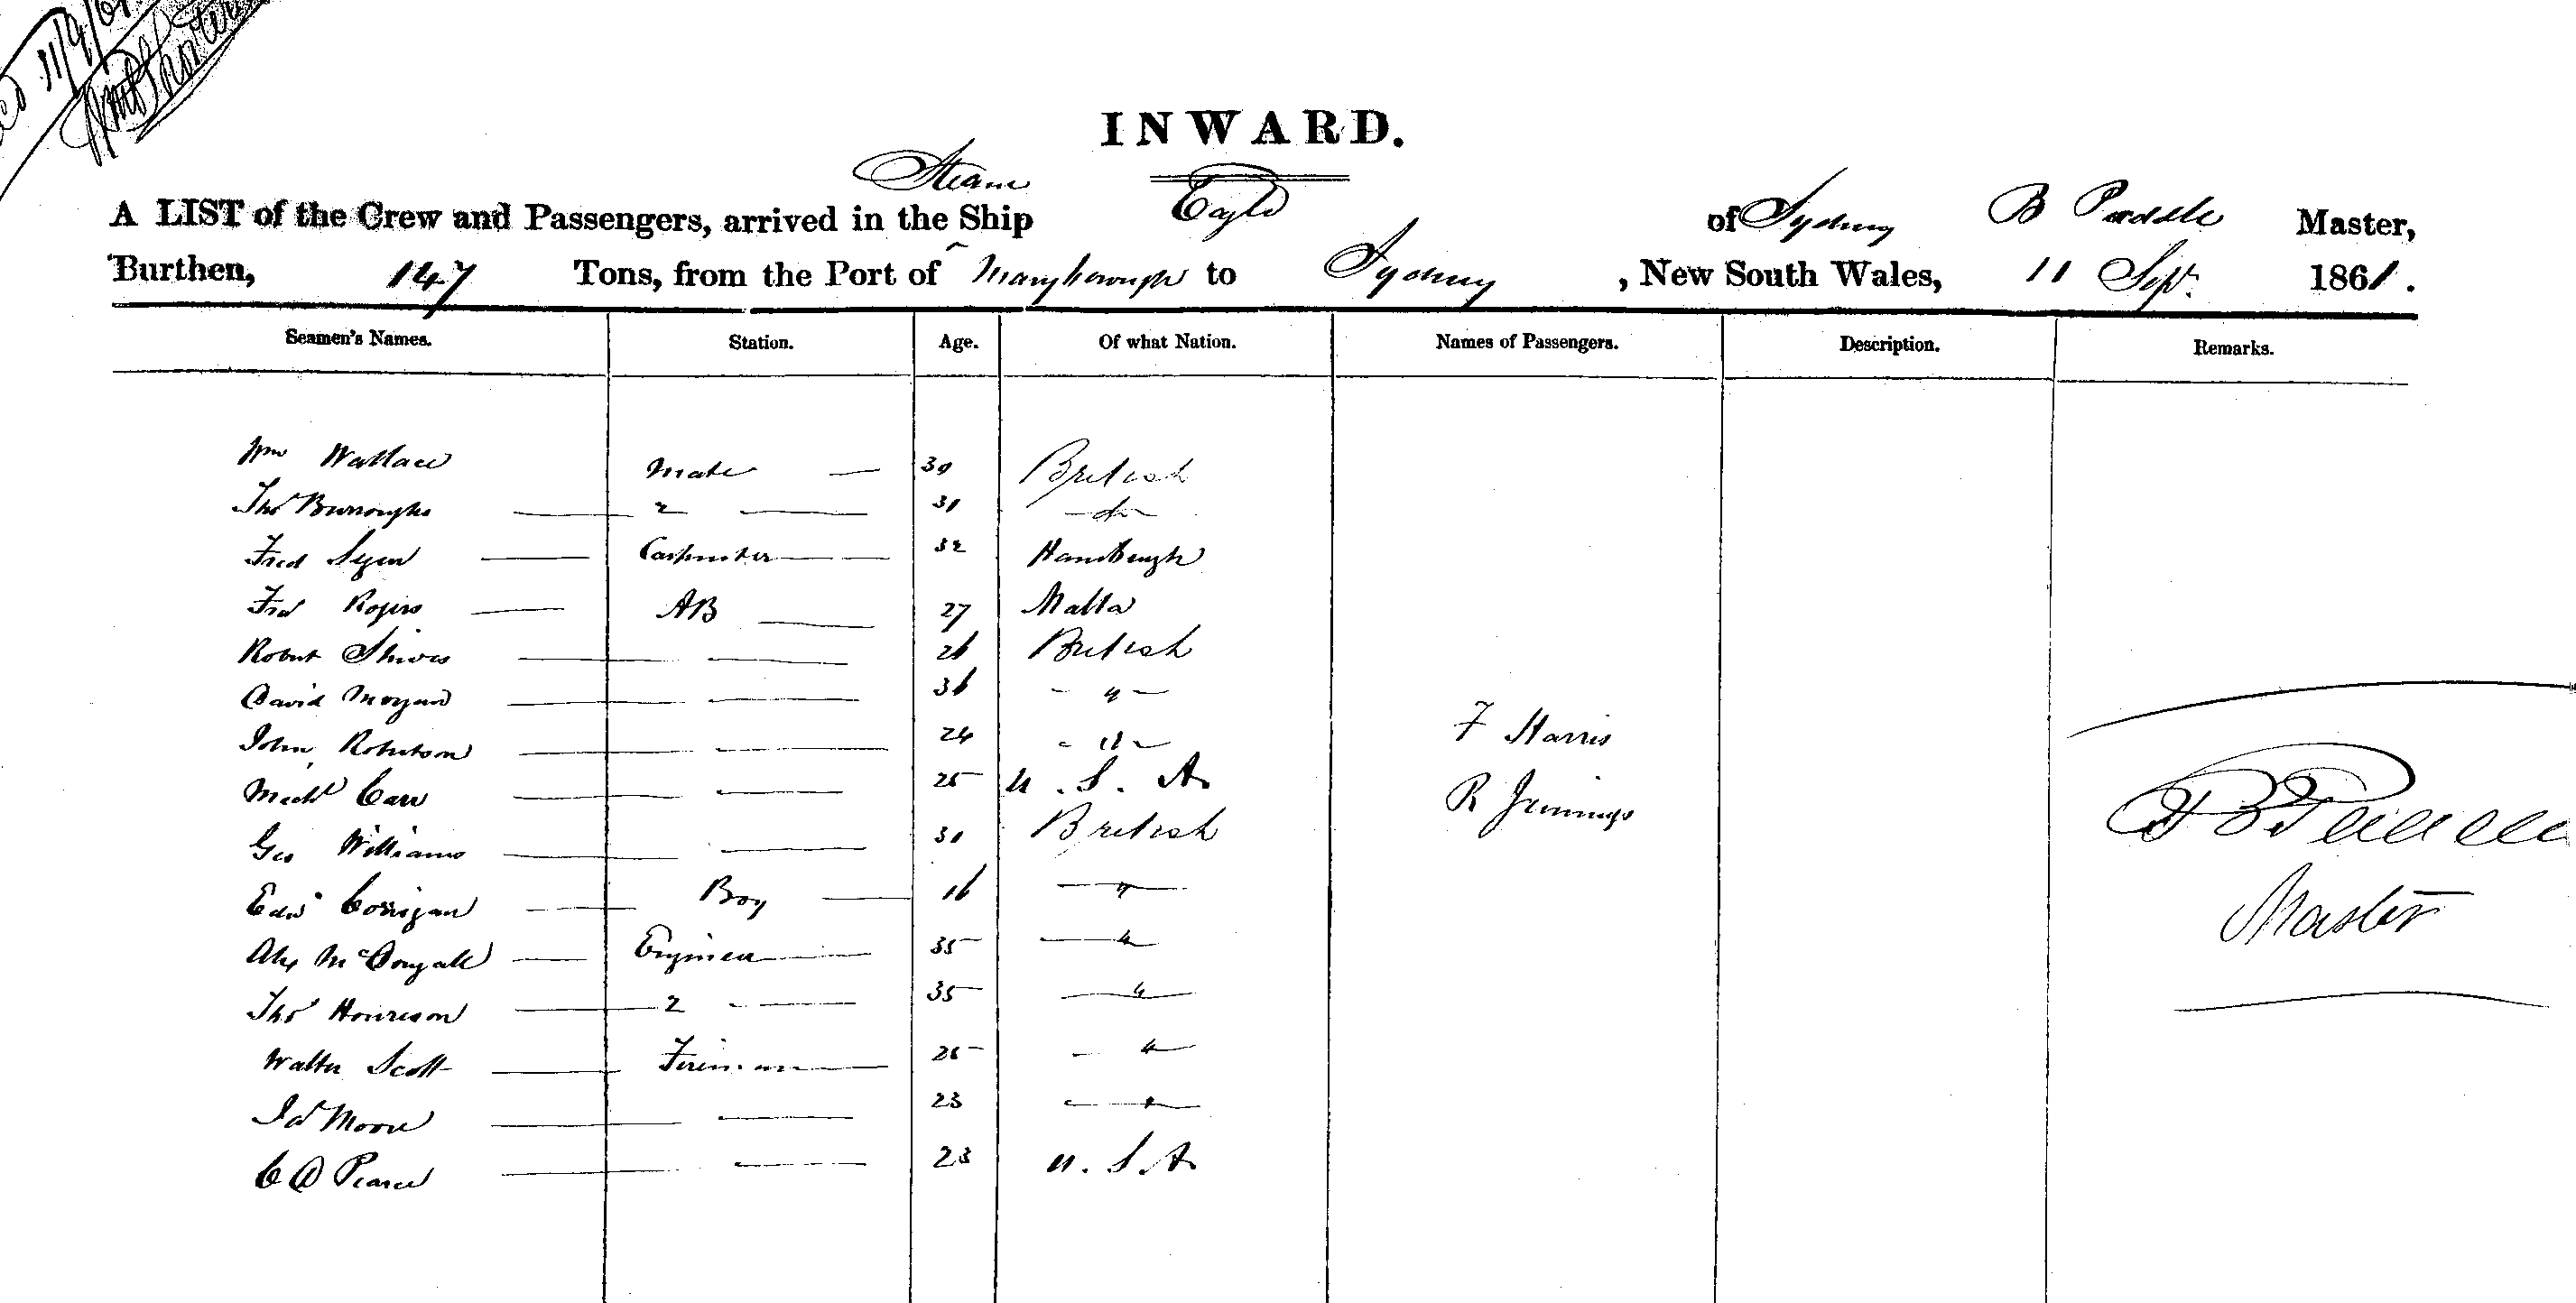 11/9/61
INWARD.
Steam
A LIST of the Crew and Passengers, arrived in the Ship Eagle of Sydney B Master,
Burthen, 147 Tons, from the Port of Maryborough to Sydney, New South Wales, 11 Sept. 1861.
Seamen's Names. Station. Age. Of what Nation. Names of Passengers. Description. Remarks.
Wm Wallace Mate — 30 British
Thos Burroughs — 2 — 31 — do —
Fred — Carpenter — 32 Hamburgh
Frd Rogers — AB — 27 Malta
Robert Shives — — 26 British
David Morgan — — 36 - " -
John Robertson — — 24 - " - F Harris
Michl Carr — — 25 U. S. A. R Jennings
Geo Williams — — 31 British
Edwd Corrigan — Boy — 16 — " — Master
Alex McDougall — Engineer — 35 — " —
Thos Hourison — 2 — 35 — " —
Walter Scott — Fireman — 25 — " —
Jas Moore — — 23 — " —
C D Pearce — — 23 U. S. A.